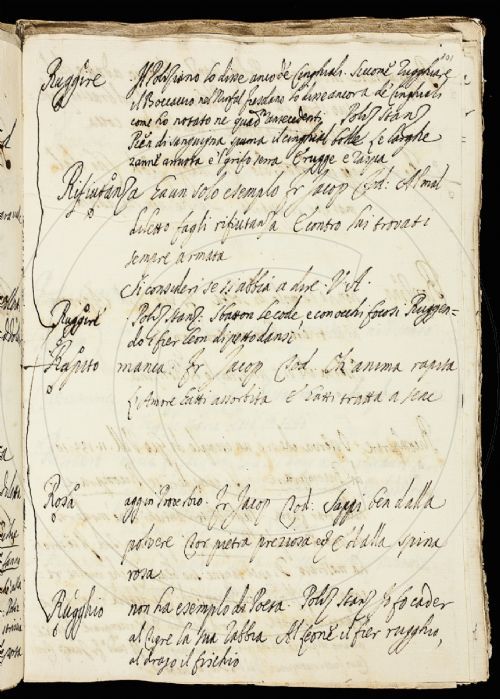 101
Ruggire Il Poliziano lo disse anco de' Cinghiali. siccome Rugghiare
il Boccaccio nel Ninfal fiesolano lo disse ancora de' Cinghiali
come ho notato ne' quad. antecedenti Poliz Stanz
Pien di sanguigna schiuma il cinghial bolle Le larghe
zanne arruota e 'l grifo serra E rugge e raspa
Rifiutanza Ha un solo esempio Fr Jacop Tod: Al mal
diletto fagli rifiutanza E contro lui trovati
sempre armata
Si consideri se s'abbia a dire. V. A.
Ruggire Poliz Stanz. Sbatton le code e con occhi focosi Ruggen-
do i fier leon di petto dansi
Rapito manca. Fr Jacop Tod Ch: anima rapita
L'Amore t'atti assorbita E t'atti tratta a se
Rosa agg in Proverbio. Fr Jacop Tod: Saggi ben dalla
polvere Cor pietra preziosa ed e' dalla spina
rosa
Rugghio non ha esempio di Poeta. Poliz Stanz Io fo cader
al tigre la sua rabbia Al leone il fier rugghio,
al drago il fischio